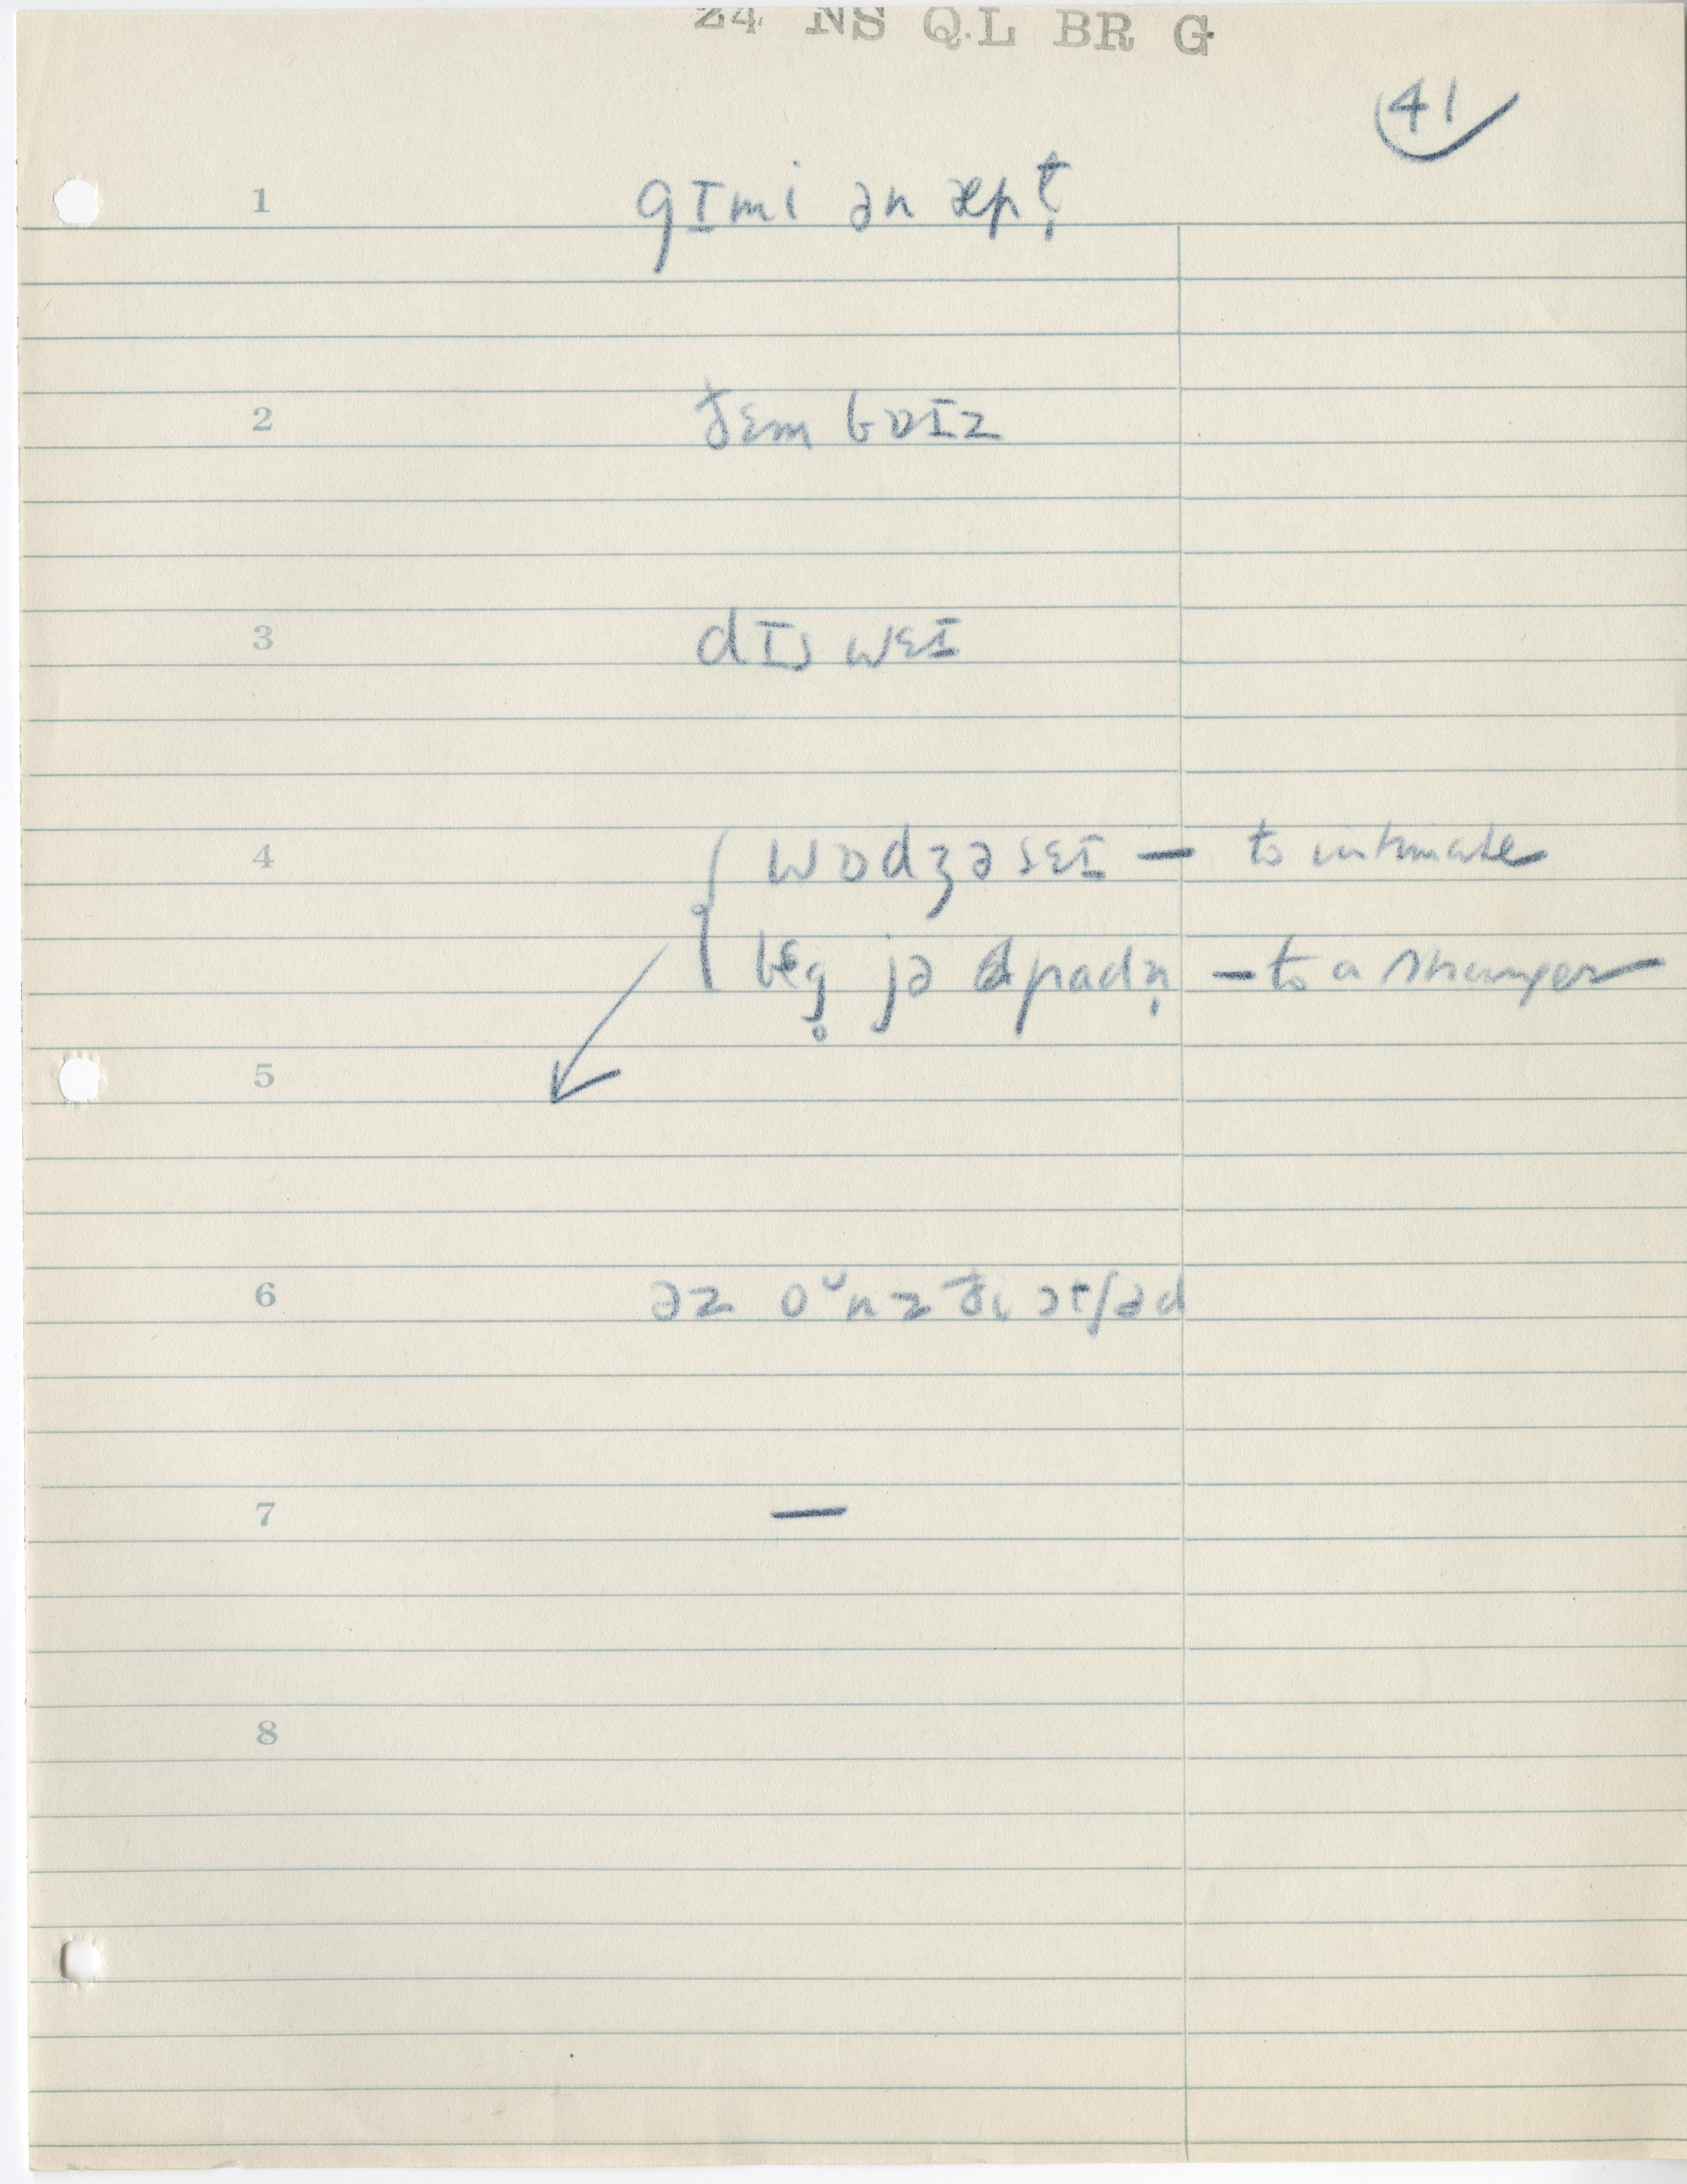 24 NS Q.L BR G
41
1 gɪmi ən æpt̩
2 ðɛm bɒɪz
3 dɪs wɛɪ
4 wɒdʒə sɛɪ — to intimate
bɛg̥ jə pɑdn̩ — to a stranger
5
6 əz oᵕnz ði ɔtʃəd
7 —
8